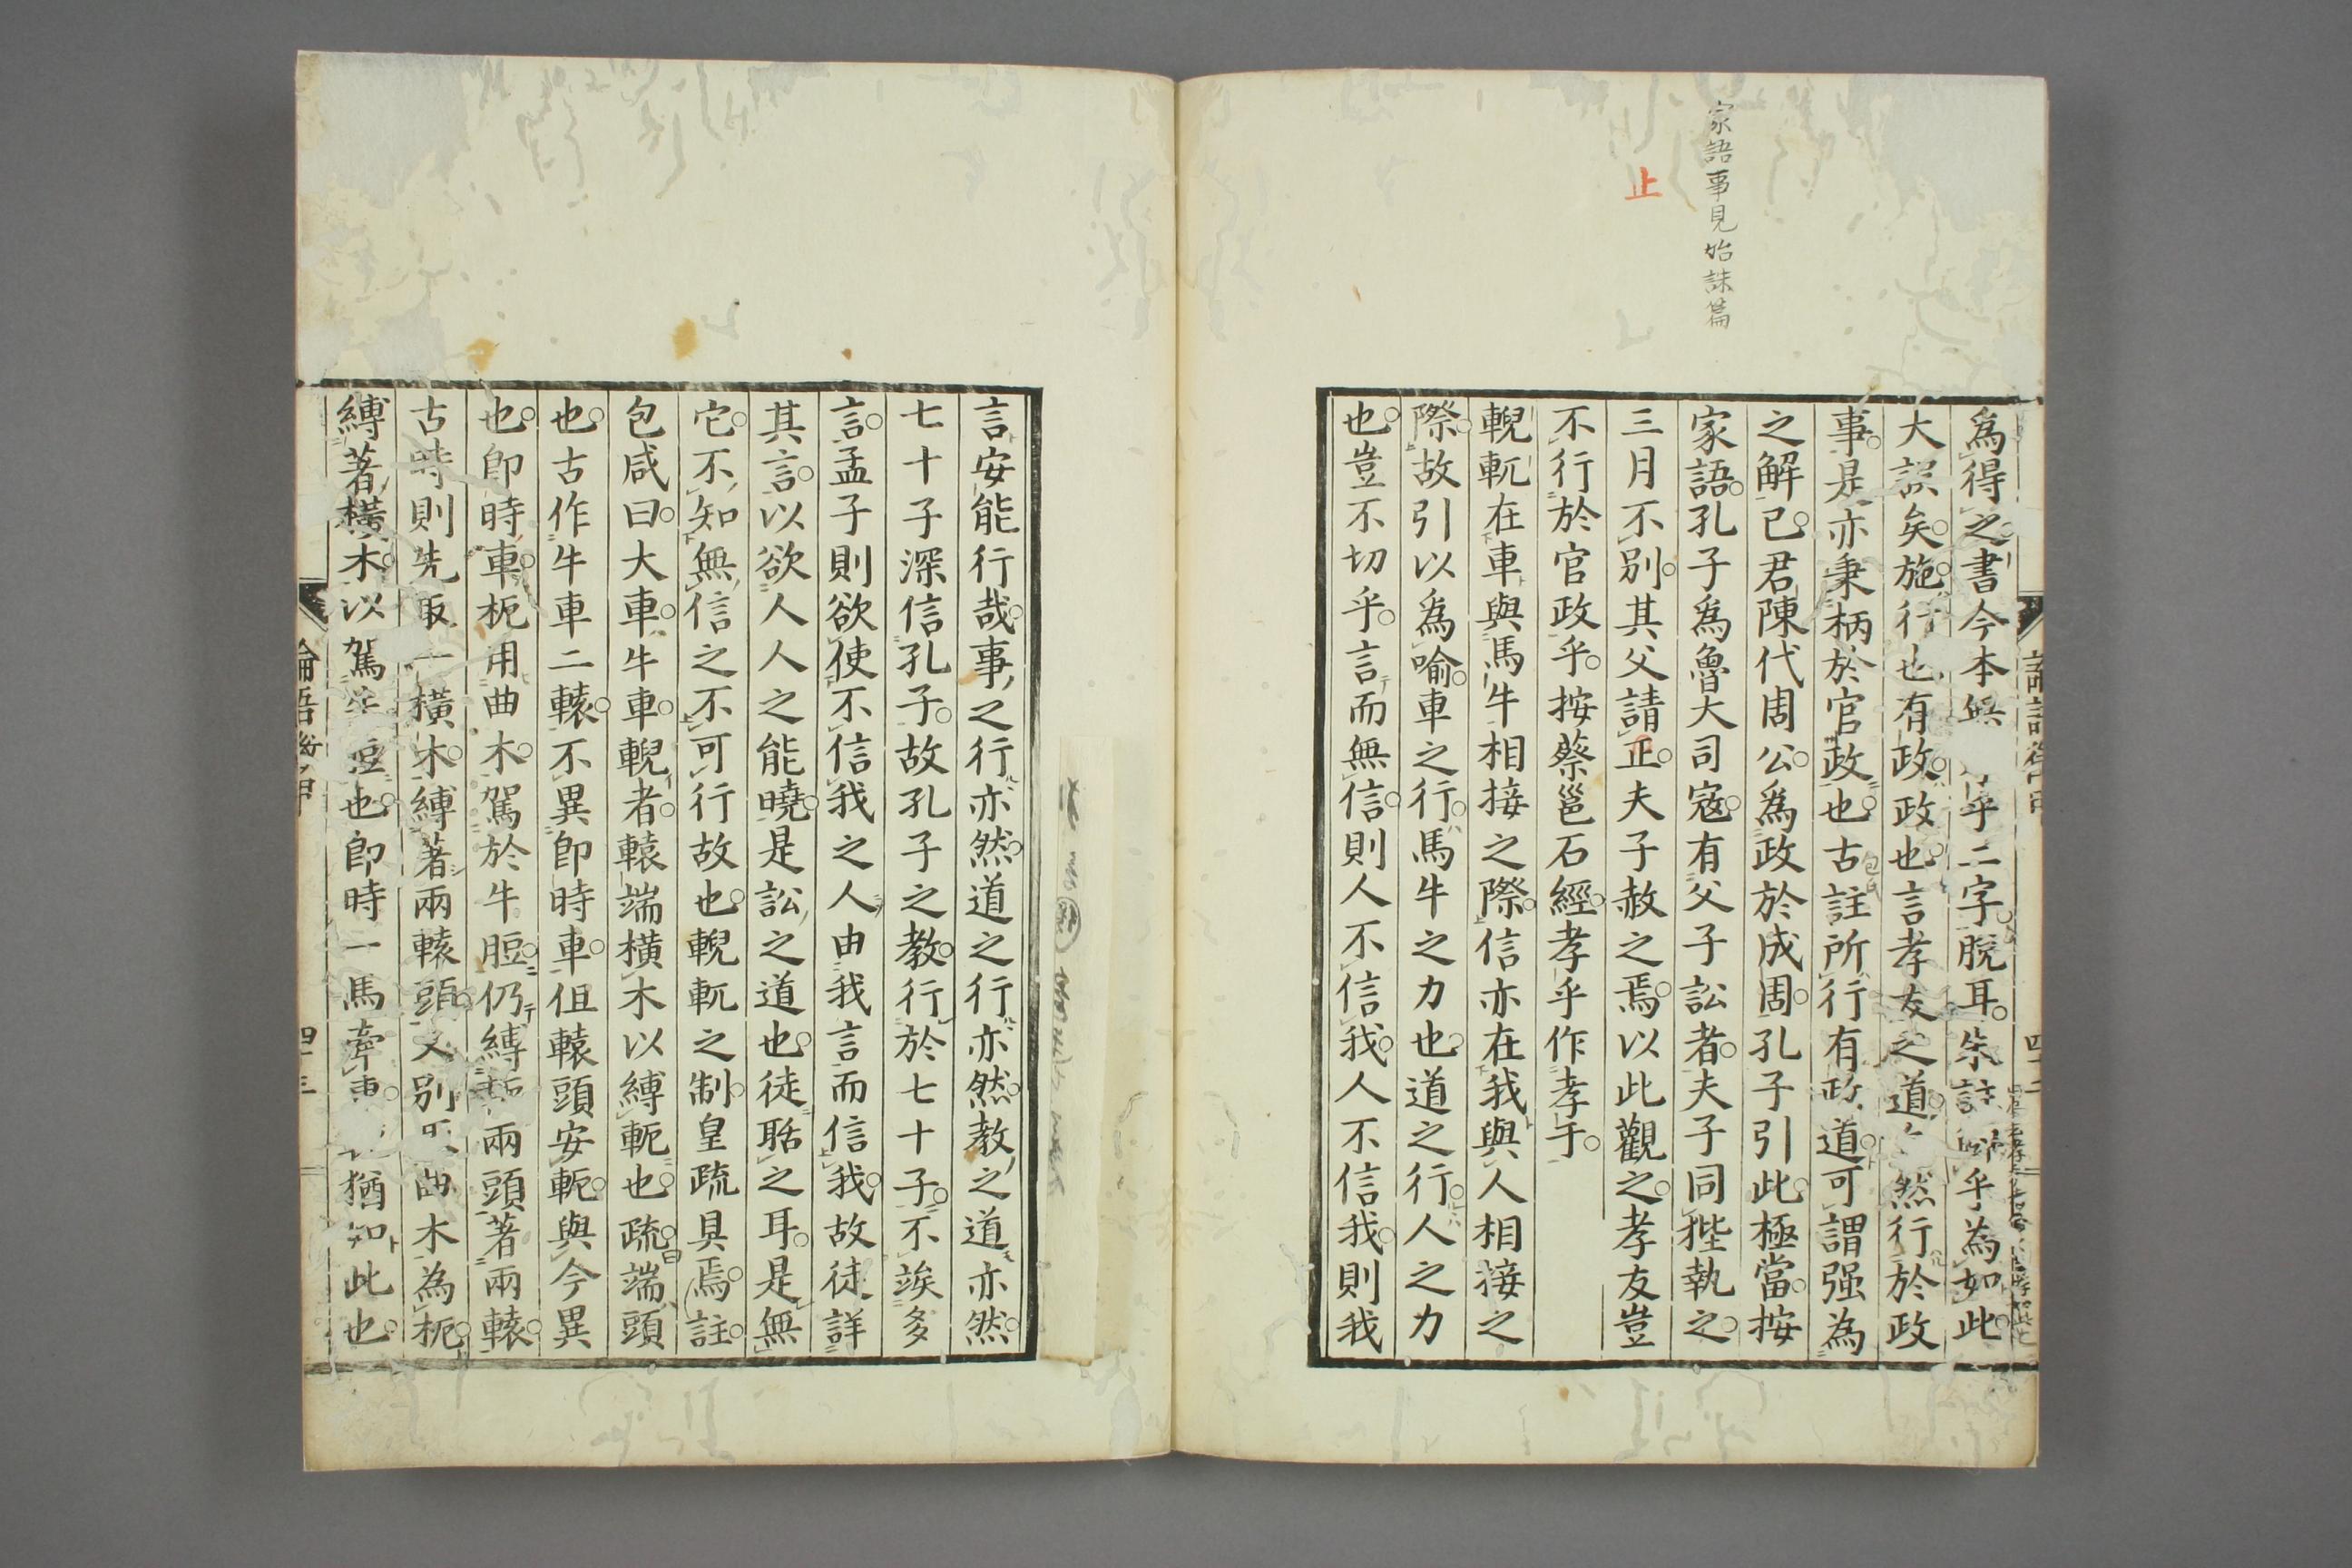 家語事見始誅篇
止
爲得之書今本無孝乎二字脫耳朱註似乎為如此
大誤矣施行也有政政也言孝友之道然行於政
事是亦秉柄於官政也古註所行有政道可謂强為
包氏
之解已君陳代周公爲政於成周孔子引此極當按
家語孔子爲魯大司寇有父子訟者夫子同狴執之
三月不別其父請正夫子赦之焉以此觀之孝友豈
不行於官政乎按蔡邕石經孝乎作孝于
輗軏在車與馬牛相接之際信亦在我與人相接之
際故引以爲喻車之行馬牛之力也道之行人之力
也豈不切乎言而無信則人不信我人不信我則我
言安能行哉事之行亦然道之行亦然教之道亦然
七十子深信孔子故孔子之教行於七十子不竢多
言孟子則欲使不信我之人由我言而信我故徒詳
其言以欲人人之能曉是訟之道也徒聒之耳是無
它不知無信之不可行故也輗軏之制皇疏具焉註
包咸曰大車牛車輗者轅端橫木以縛軛也疏曰端頭
也古作牛車二轅不異卽時車但轅頭安軛與今異
也卽時車枙用曲木駕於牛脰仍縛枙兩頭著兩轅
古時則先取一橫木縛著兩轅頭又別取曲木為枙
縛著橫木以駕牛脰也卽時一馬牽車猶如此也